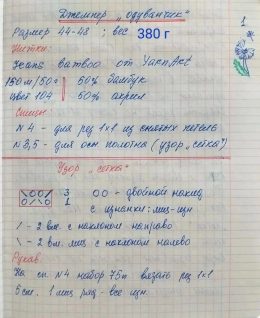 1
Джемпер „одуванчик"
Размер 44-48 ; вес 380 г
Нитки:
Jeans Bamboo от YarnArt
150м/50г 50% бамбук
цвет 104 50% акрил
Спицы:
N4 - для рез 1х1 из снятых петель
N3,5 - для осн полотна (узор „сетка")
Узор „сетка"
\OO/ 3 OO - двойной накид
O/\O 1 с изнанки: лиц-изн
/ - 2 вм. с наклоном направо
\ - 2 вм. лиц с наклоном налево
Рукав:
На сп. N4 набор 75п вязать рез 1х1
5см. 1 лиц ряд - все изн.